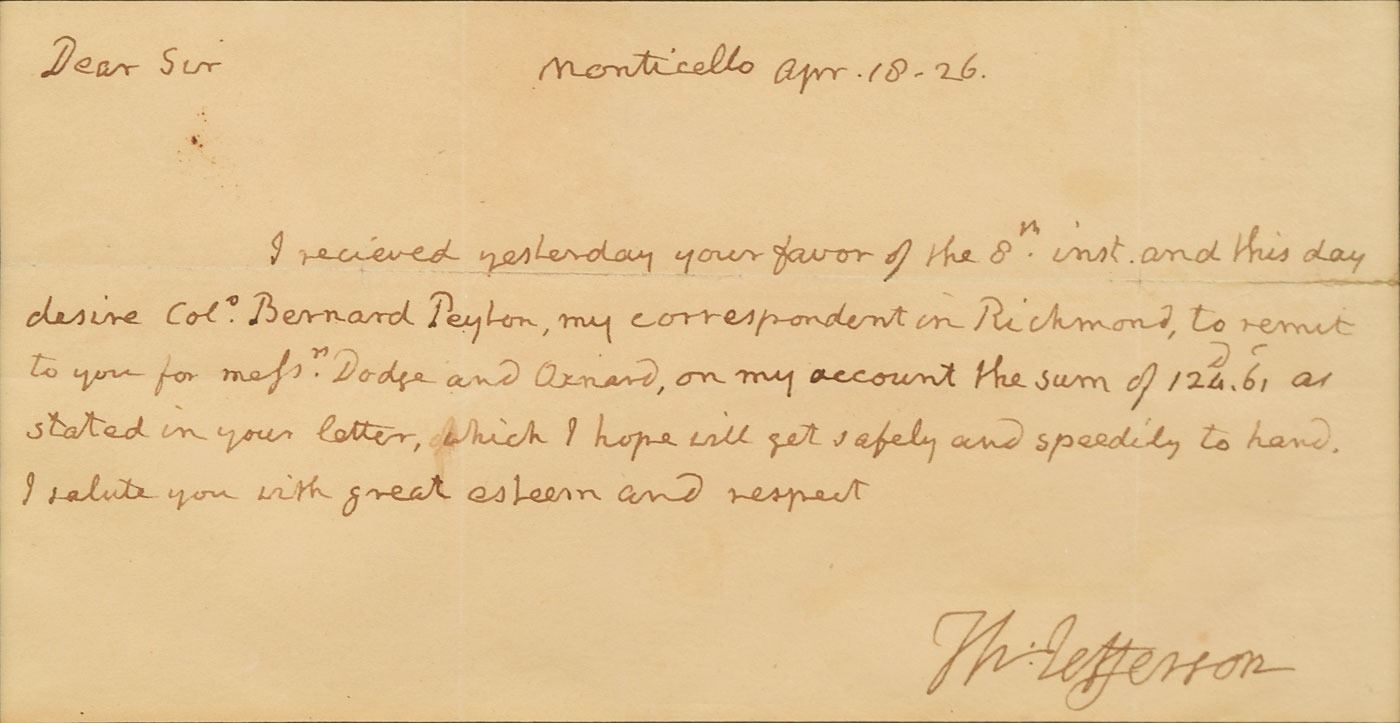 Dear Sir Monticello Apr. 18. 26.
I recieved yesterday your favor of the 8th. inst. and this day
desire Colo. Bernard Peyton, my correspondent in Richmond, to remit
to you for messrs. Dodge and Oxnard, on my account the sum of 124.D 61 as
stated in your letter, which I hope will get safely and speedily to hand.
I salute you with great esteem and respect
Th: Jefferson